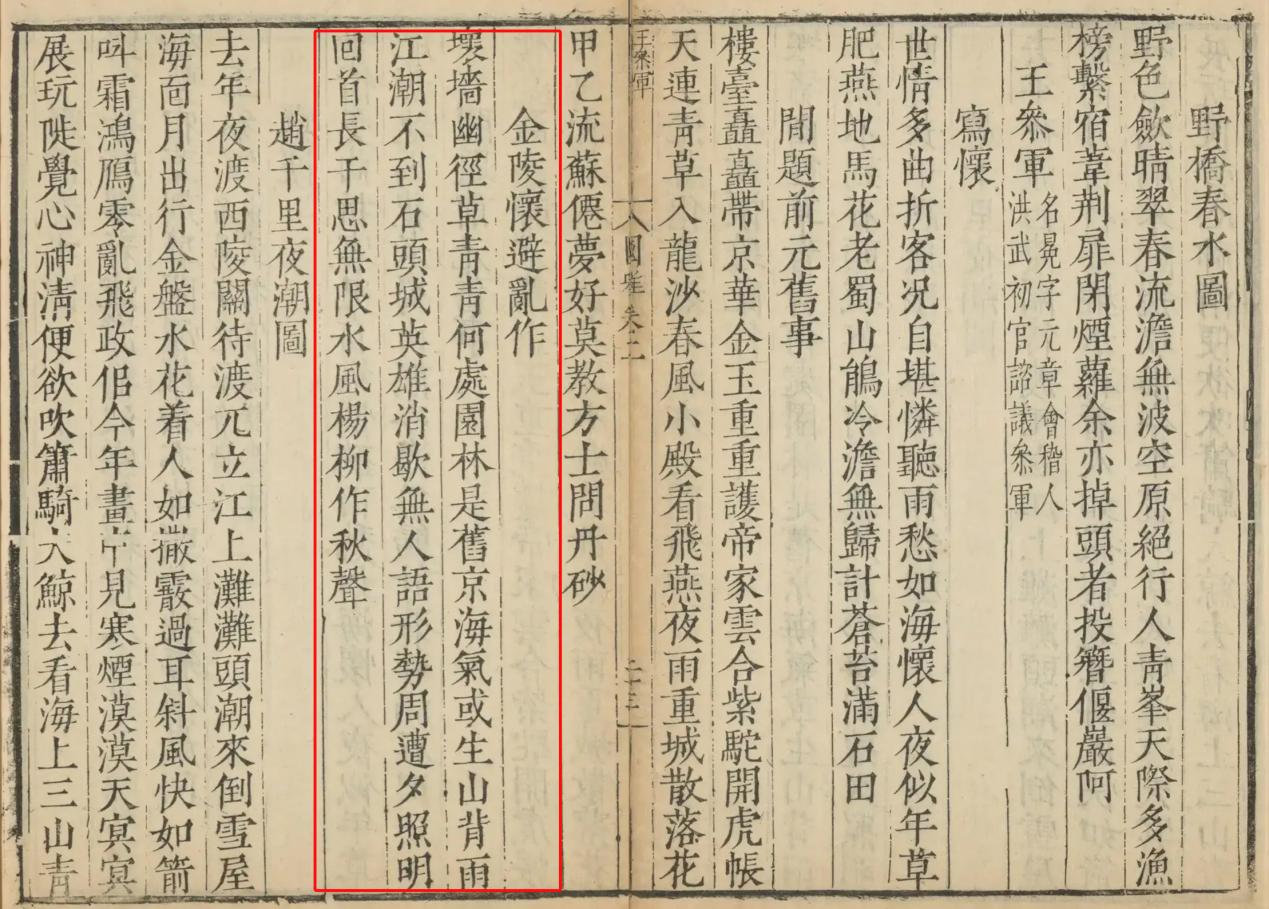 野橋春水圖
野色歛晴翠春流澹無波空原絕行人青峯天際多漁
榜繫宿葦荆扉閉煙蘿余亦掉頭者投簪偃巖阿
王叅軍
名冕字元章會稽人
洪武初官諮議叅軍
寫懷
世情多曲折客况自堪憐聽雨愁如海懷人夜似年草
肥燕地馬花老蜀山鵑冷澹無歸計蒼苔滿石田
閒題前元舊事
樓臺矗矗帶京華金玉重重護帝家雲合紫駝開虎帳
天連青草入龍沙春風小殿看飛燕夜雨重城散落花
王叅軍
國雅卷二
二十三
甲乙流蘇僊夢好莫教方士問丹砂
金陵懷避亂作
壞墻幽徑草青青何處園林是舊京海氣或生山背雨
江潮不到石頭城英雄消歇無人語形勢周遭夕照明
回首長干思無限水風楊柳作秋聲
趙千里夜潮圖
去年夜渡西陵關待渡兀立江上灘灘頭潮來倒雪屋
海面月出行金盤水花着人如撒霰過耳斜風快如箭
呌霜鴻鴈零亂飛政佀今年畫中見寒煙漠漠天㝠㝠
展玩陡覺心神淸便欲吹簫騎大鯨去看海上三山青